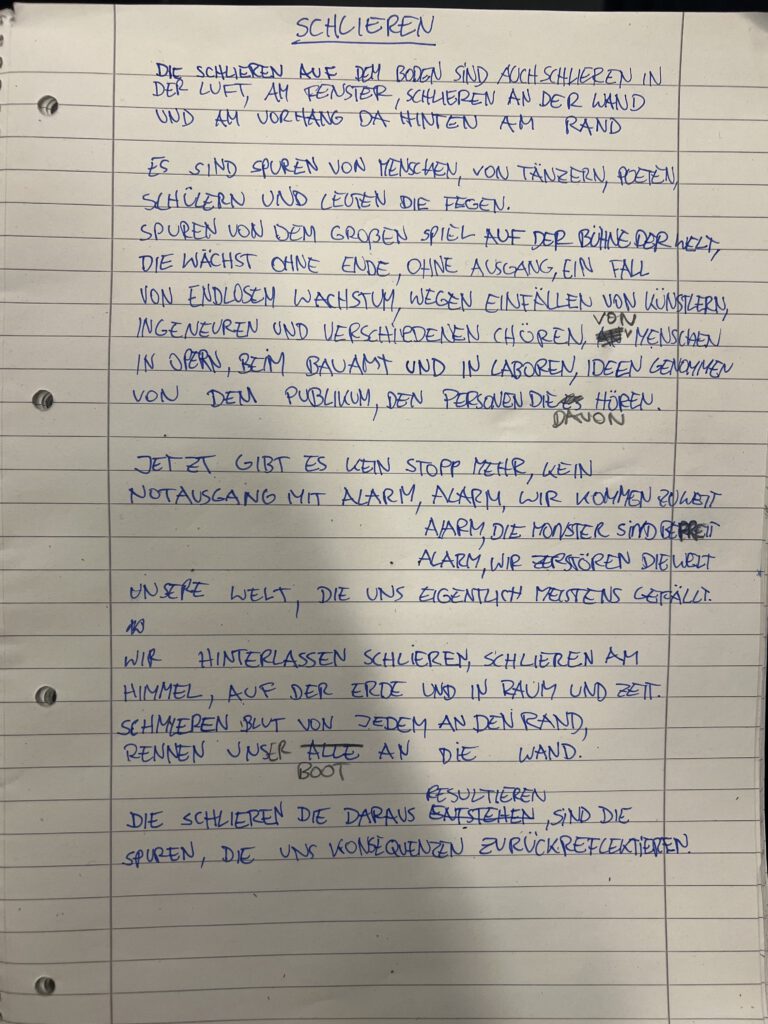 SCHLIEREN
DIE SCHLIEREN AUF DEM BODEN SIND AUCH SCHLIEREN IN
DER LUFT, AM FENSTER, SCHLIEREN AN DER WAND
UND AM VORHANG DA HINTEN AM RAND
ES SIND SPUREN VON MENSCHEN, VON TÄNZERN, POETEN,
SCHÜLERN UND LEUTEN DIE FEGEN.
SPUREN VON DEM GROßEN SPIEL AUF DER BÜHNE DER WELT,
DIE WÄCHST OHNE ENDE, OHNE AUSGANG, EIN FALL
VON ENDLOSEM WACHSTUM, WEGEN EINFÄLLEN VON KÜNSTLERN,
INGENEUREN UND VERSCHIEDENEN CHÖREN, VON MENSCHEN
IN OPERN, BEIM BAUAMT UND IN LABOREN, IDEEN GENOMMEN
VON DEM PUBLIKUM, DEN PERSONEN DIE ES HÖREN.
DAVON
JETZT GIBT ES KEIN STOPP MEHR, KEIN
NOTAUSGANG MIT ALARM, ALARM, WIR KOMMEN ZU WEIT
ALARM, DIE MONSTER SIND BEREIT
ALARM, WIR ZERSTÖREN DIE WELT
UNSERE WELT, DIE UNS EIGENTLICH MEISTENS GEFÄLLT.
WIR HINTERLASSEN SCHLIEREN, SCHLIEREN AM
HIMMEL, AUF DER ERDE UND IN RAUM UND ZEIT.
SCHMIEREN BLUT VON JEDEM AN DEN RAND,
RENNEN UNSER ALLE AN DIE WAND.
BOOT
RESULTIEREN
DIE SCHLIEREN DIE DARAUS ENTSTEHEN, SIND DIE
SPUREN, DIE UNS KONSEQUENZEN ZURÜCKREFLEKTIEREN.